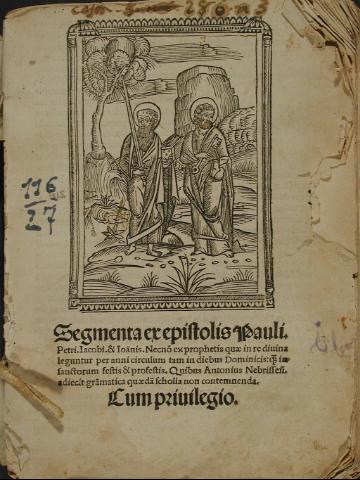 286 n 3
116
27
Segmenta ex epistolis Pauli.
Petri. Iacobi. & Ioānis. Necnō ex prophetis quæ in re diuina
leguntur per anni circulum tam in diebus Dominicis: q̃ in
sanctorum festis & profestis. Quibus Antonius Nebrissen̄.
adiecit grāmatica quædā scholia non contemnenda.
Cum priuilegio.